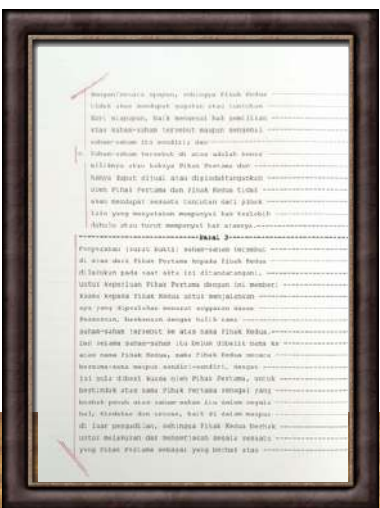 dengan/secara apapun, sehingga Pihak Kedua
tidak akan mendapat gugatan atau tuntutan
dari siapapun, baik mengenai hak pemilikan
atas saham-saham tersebut maupun mengenai
saham-saham itu sendiri; dan
Saham-saham tersebut di atas adalah benar
miliknya atau haknya Pihak Pertama dan
hanya dapat dijual atau dipindahtangankan
oleh Pihak Pertama dan Pihak Kedua tidak
akan mendapat sesuatu tuntutan dari pihak
lain yang menyatakan mempunyai hak terlebih
dahulu atau turut mempunyai hak atasnya.
Pasal 3
Penyerahan (surat bukti) saham-saham tersebut
di atas dari Pihak Pertama kepada Pihak Kedua
dilakukan pada saat akta ini ditandatangani,
untuk keperluan Pihak Pertama dengan ini memberi
kuasa kepada Pihak Kedua untuk menjalankan
apa yang diperlukan menurut anggaran dasar
Perseroan, berkenaan dengan balik nama
saham-saham tersebut ke atas nama Pihak Kedua.
Dan selama saham-saham itu belum dibalik nama ke
atas nama Pihak Kedua, maka Pihak Kedua secara
bersama-sama maupun sendiri-sendiri, dengan
ini pula diberi kuasa oleh Pihak Pertama, untuk
bertindak atas nama Pihak Pertama sebagai yang
berhak penuh atas saham-saham itu dalam segala
hal, tindakan dan urusan, baik di dalam maupun
di luar pengadilan, sehingga Pihak Kedua berhak
untuk melakukan dan mengerjakan segala sesuatu
yang Pihak Pertama sebagai yang berhak atas